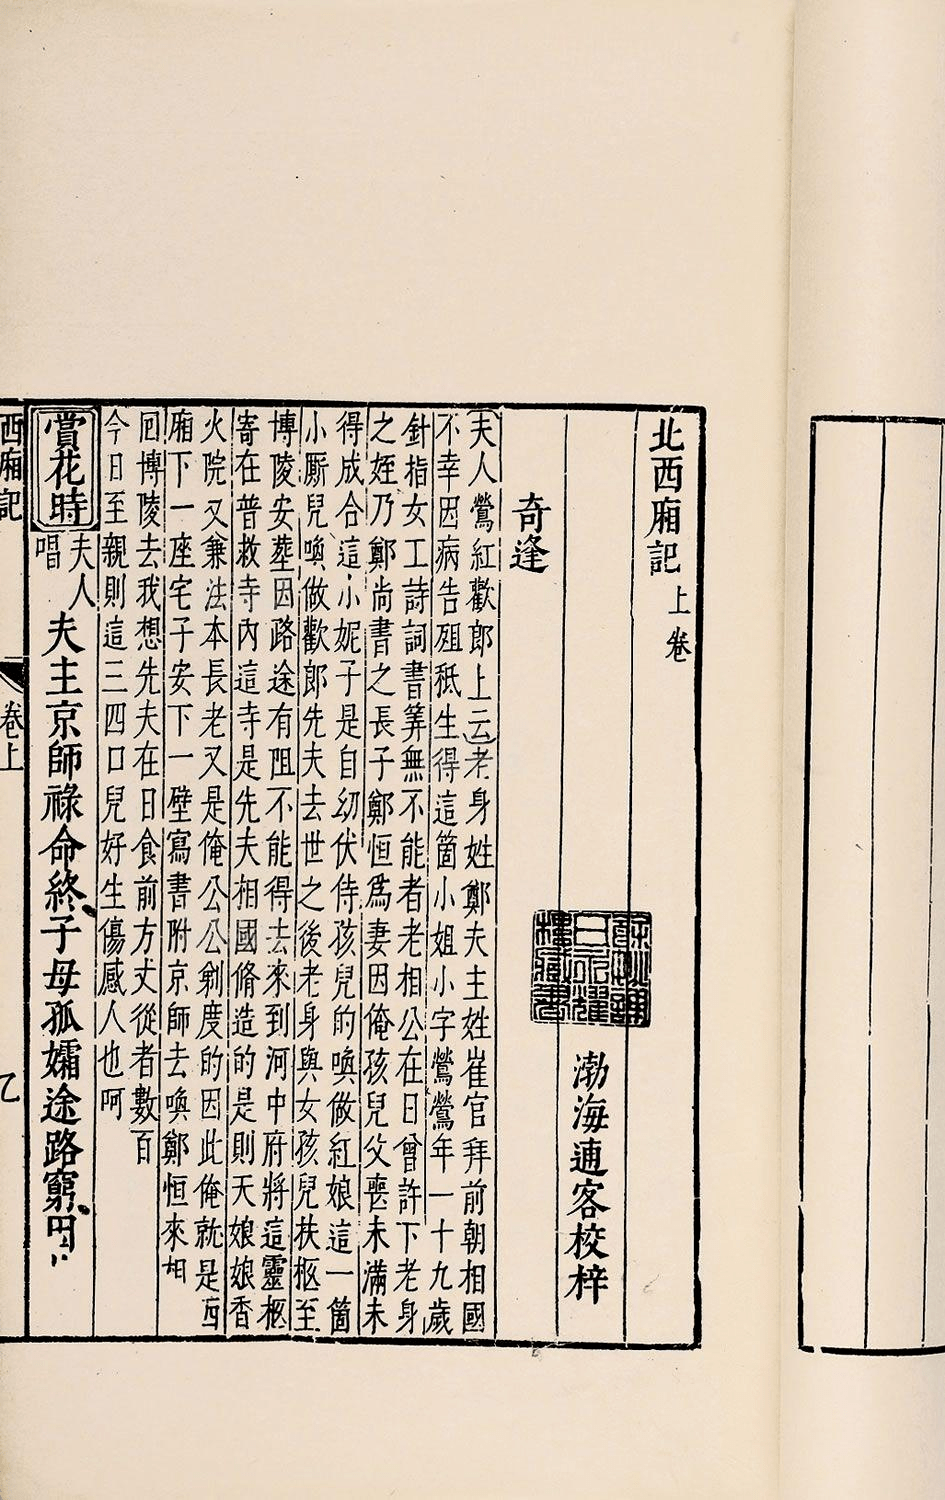 北西廂記 上卷
渤海逋客校梓
奇逢
夫人鶯紅歡郎上云老身姓鄭夫主姓崔官拜前朝相國
不幸因病告殂秪生得這箇小姐小字鶯鶯年一十九歲
針指女工詩詞書筭無不能者老相公在日曾許下老身
之姪乃鄭尚書之長子鄭恒爲妻因俺孩兒父喪未滿未
得成合這小妮子是自幼伏侍孩兒的喚做紅娘這一箇
小厮兒喚做歡郎先夫去世之後老身與女孩兒扶柩至
博陵安塟因路途有阻不能得去來到河中府將這靈柩
寄在普救寺內這寺是先夫相國脩造的是則天娘娘香
火院又兼法本長老又是俺公公剃度的因此俺就是西
廂下一座宅子安下一壁寫書附京師去喚鄭恒來相
囘博陵去我想先夫在日食前方丈從者數百
今日至親則這三四口兒好生傷感人也呵
賞花時 夫人唱 夫主京師祿命終子母孤孀途路窮
西廂記 卷上